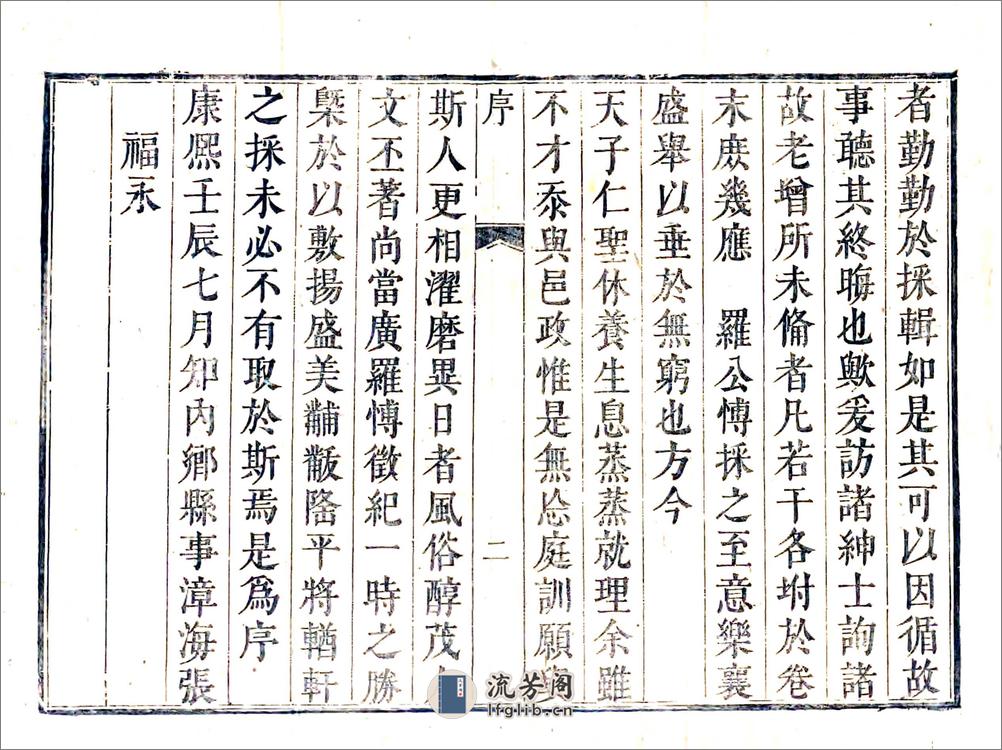 者勤勤於採輯如是其可以因循故
事聽其終晦也歟爰訪諸紳士詢諸
故老增所未俻者凡若干各坿於卷
末庶幾應　羅公愽採之至意樂襄
盛舉以垂於無窮也方今
天子仁聖休養生息蒸蒸就理余雖
不才忝與邑政惟是無忘庭訓願與
序
二
斯人更相濯磨異日者風俗醇茂
文丕著尚當廣羅愽徵紀一時之勝
槩於以敷揚盛美黼黻隆平將輶軒
之採未必不有取於斯焉是爲序
康熈壬辰七月知內鄉縣事漳海張
福永
流芳阁
lfglib.cn